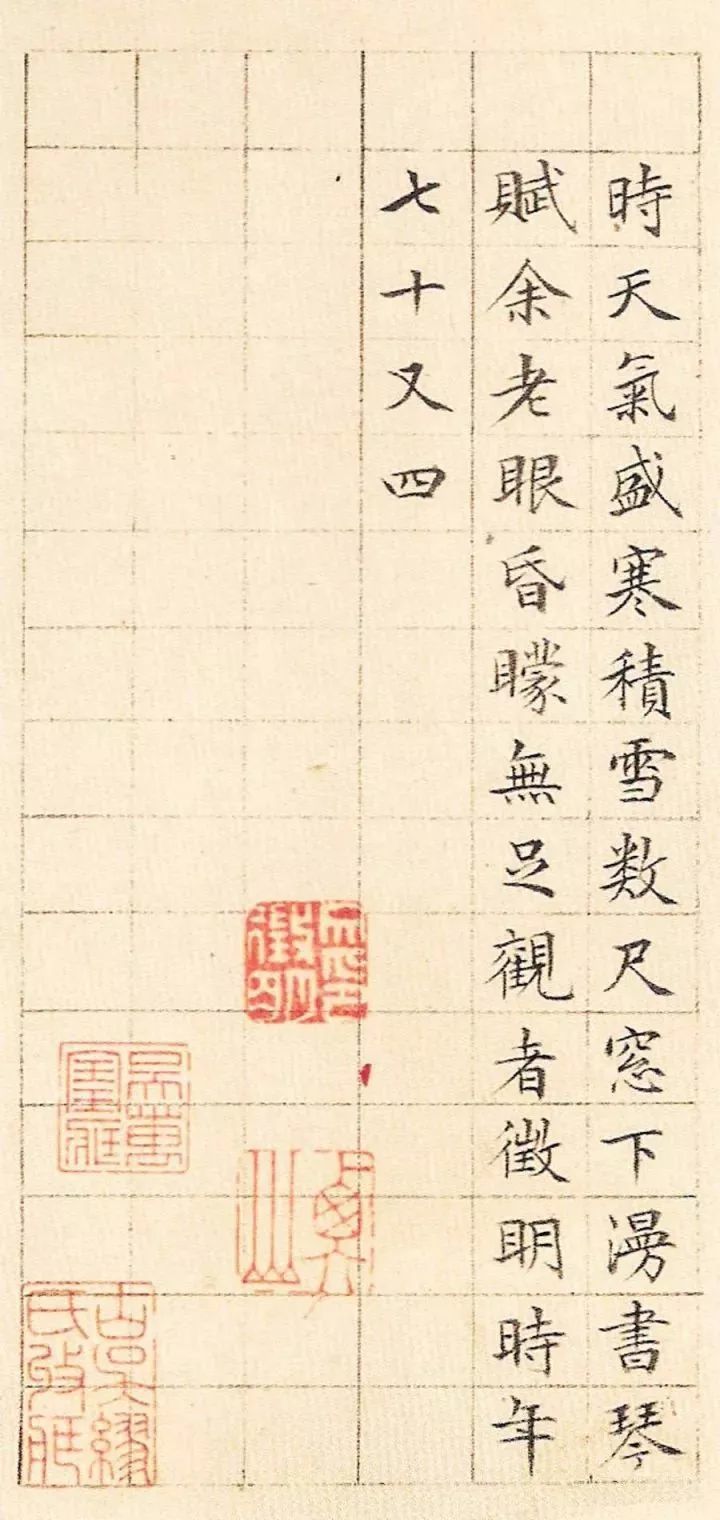 時天氣盛寒積雪数尺窓下漫書琴
賦余老眼昏矇無足觀者徵明時年
七十又四
徵明
衡山